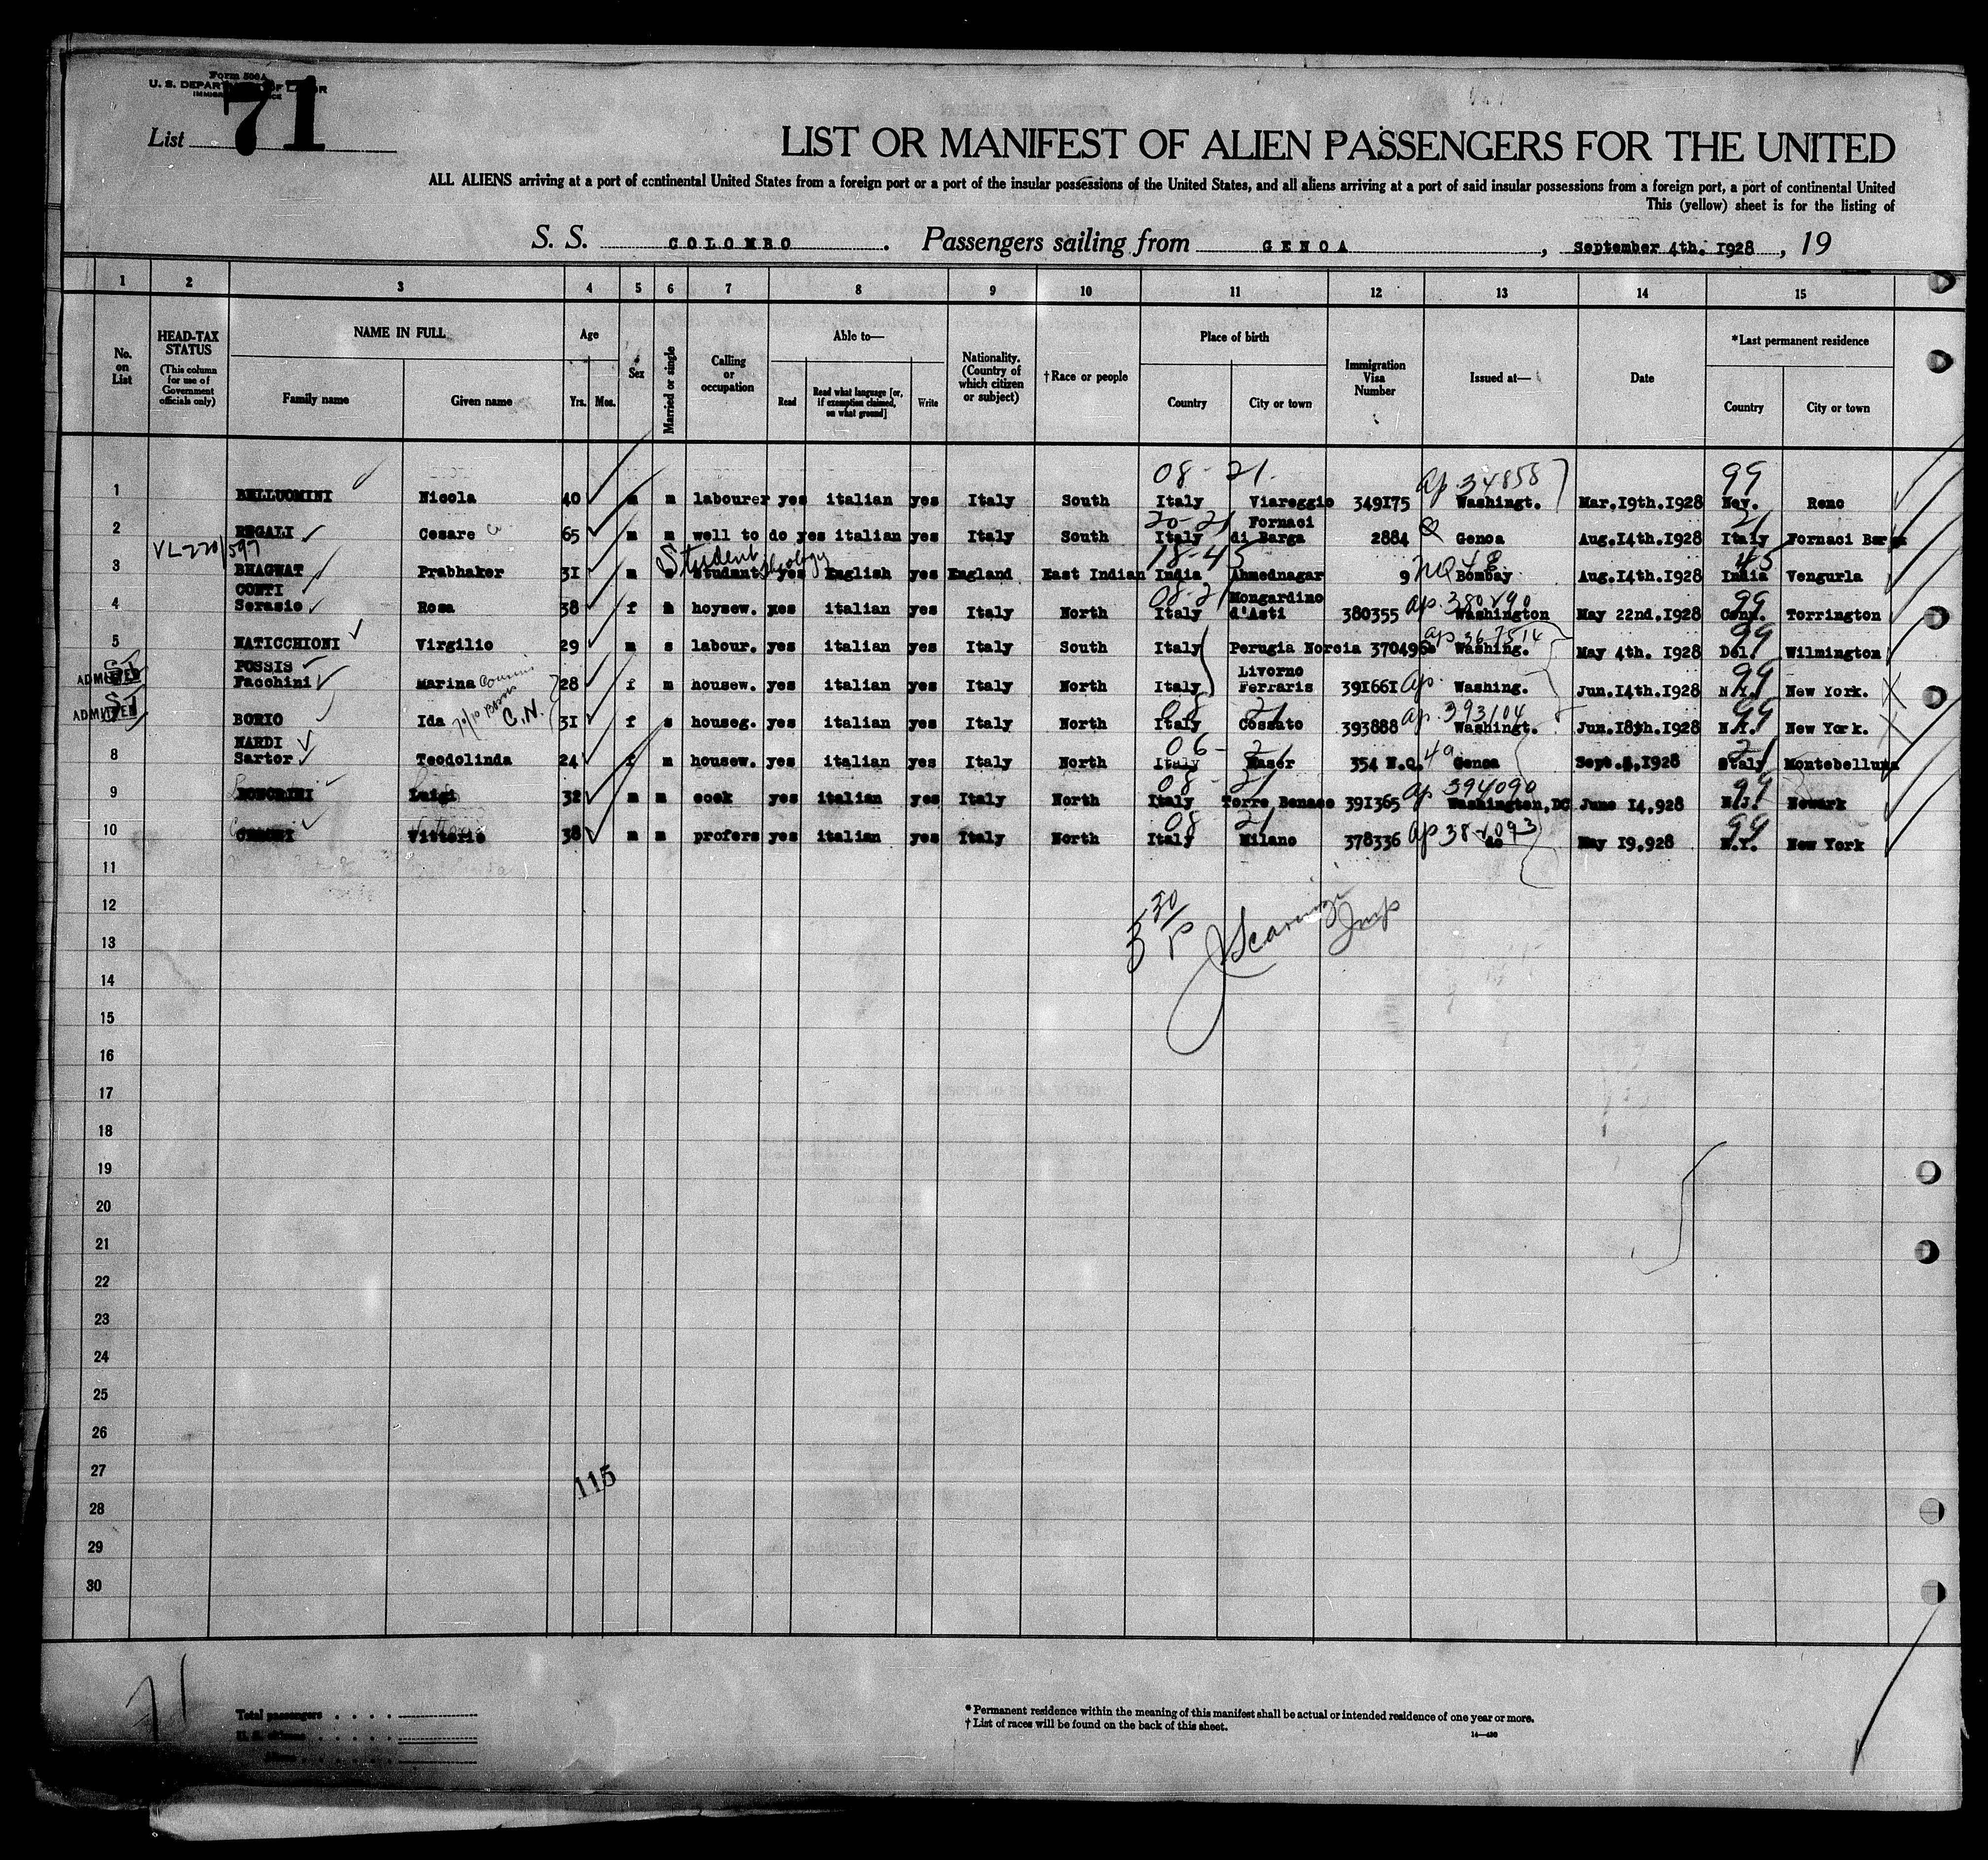 Form 500A
U. S. DEPARTMENT OF LABOR
List 71
LIST OR MANIFEST OF ALIEN PASSENGERS FOR THE UNITED
ALL ALIENS arriving at a port of continental United States from a foreign port or a port of the insular possessions of the United States, and all aliens arriving at a port of said insular possessions from a foreign port, a port of continental United
This (yellow) sheet is for the listing of
S. S. COLOMBO . Passengers sailing from GENOA , September 4th. 1928 , 19
1 2 3 4 5 6 7 8 9 10 11 12 13 14 15
No. on List HEAD-TAX STATUS (This column for use of Government officials only) NAME IN FULL Family name Given name Age Yrs. Mos. Sex Married or single Calling or occupation Able to— Read Read what language [or, if exemption claimed, on what ground] Write Nationality. (Country of which citizen or subject) † Race or people Place of birth Country City or town Immigration Visa Number Issued at— Date *Last permanent residence Country City or town
08 - 21. ap. 34858 99
1 BELLUOMINI Nicola 40 m m labourer yes italian yes Italy South Italy Viareggio 349175 Washingt. Mar.19th.1928 Nev. Reno
20-21 Fornaci 21
2 REGALI Cesare 65 m m well to do yes italian yes Italy South Italy di Barga 2884 Q Genoa Aug.14th.1928 Italy Fornaci Barga
VL 220/597 Student 18-45 45
3 BHAGWAT Prabhaker 31 m s student yes English yes England East Indian India Ahmednagar 9 Bombay Aug.14th.1928 India Vengurla
CONTI 08-21 Mongardino ap. 380290 99
4 Serasio Rosa 38 f m hoysew. yes italian yes Italy North Italy d'Asti 380355 Washington May 22nd.1928 Conn. Torrington
ap 367514 99
5 MATICCHIONI Virgilio 29 m s labour. yes italian yes Italy South Italy Perugia Norcia 370496 Washing. May 4th. 1928 Del. Wilmington
SI POSSIS Livorno 99
ADMITTED Facchini Marina 28 f m housew. yes italian yes Italy North Italy Ferraris 391661 ap. Washing. Jun.14th.1928 N.Y. New York.
SI C.N. 08 21 ap. 393104 99
ADMITTED BORIO Ida 31 f s houseg. yes italian yes Italy North Italy Cossato 393888 Washingt. Jun.18th.1928 N.Y. New York.
NARDI 06 - 21 21
8 Sartor Teodolinda 24 f m housew. yes italian yes Italy North Italy Maser 354 N.Q. Genoa Sept. 1928 Italy Montebelluna
08 - 21 ap 394090 99
9 RONCRINI Luigi 32 m m cook yes italian yes Italy North Italy Torre Benaco 391365 Washington,DC June 14,928 N.J. Newark
08 21 99
10 Vittorio 38 m m profers yes italian yes Italy North Italy Milano 378336 do May 19.928 N.Y. New York
11
12
13
14
15
16
17
18
19
20
21
22
23
24
25
26
27
115
28
29
30
71
Total passengers
U. S. citizens
Aliens
* Permanent residence within the meaning of this manifest shall be actual or intended residence of one year or more.
† List of races will be found on the back of this sheet.
14—430